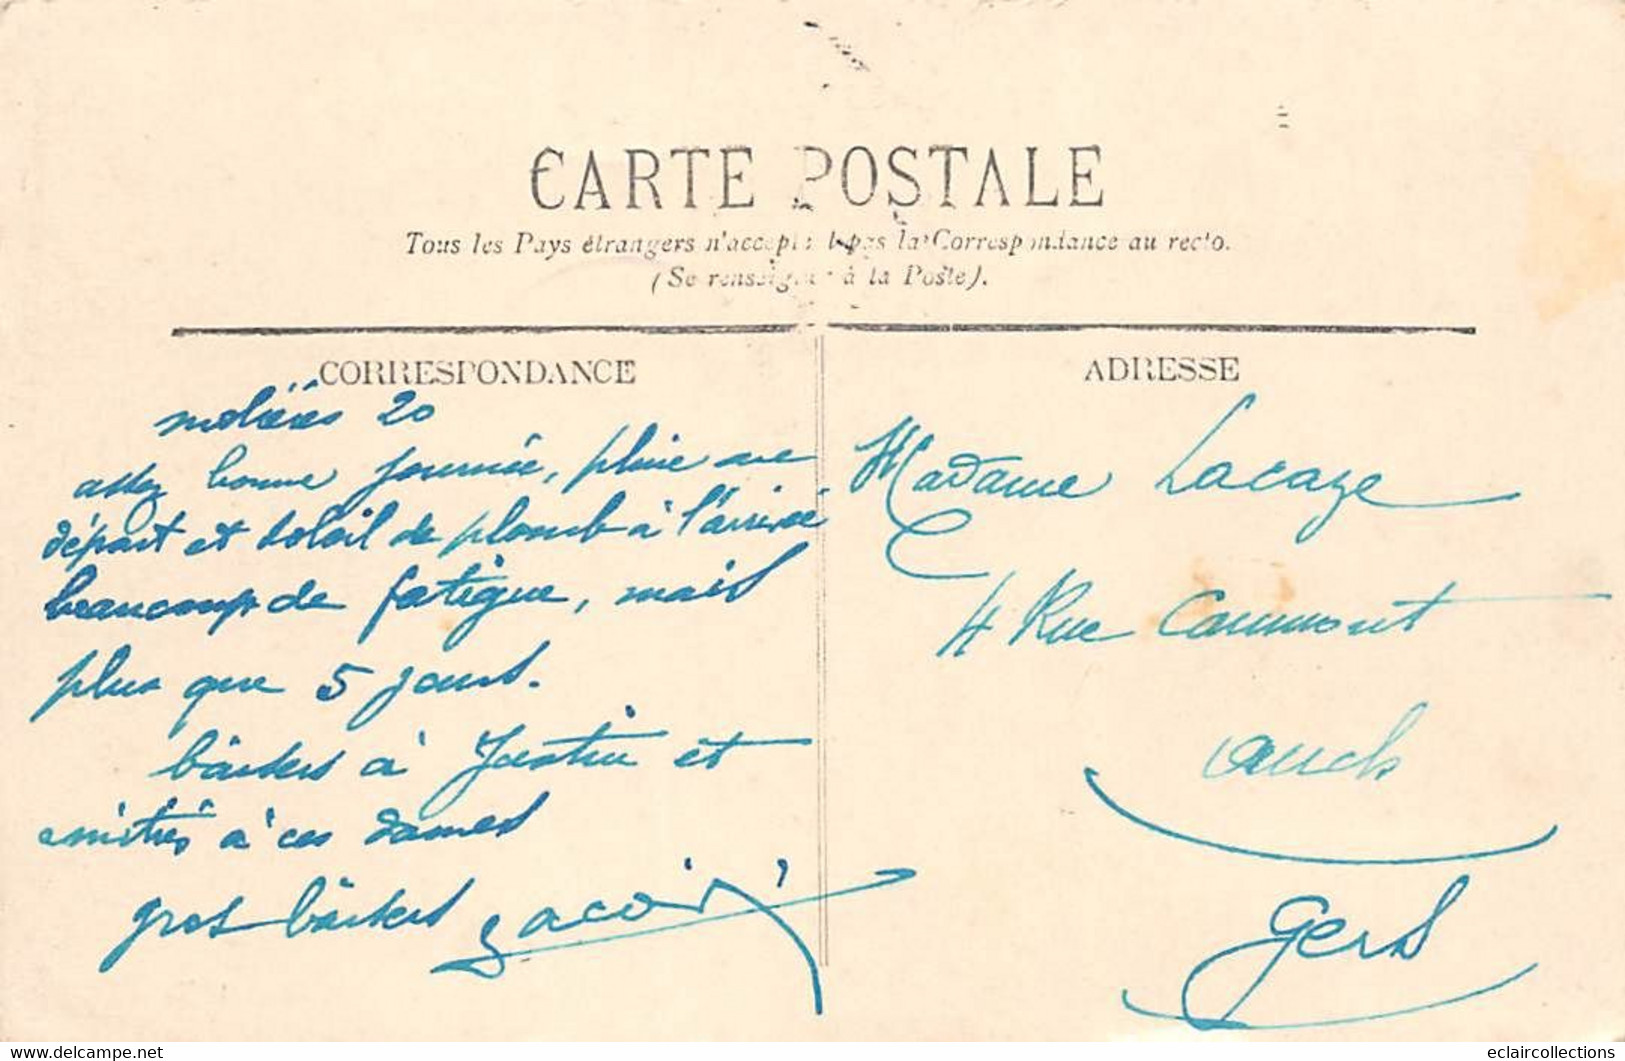 CARTE POSTALE
Tous les Pays étrangers n'acceptent pas la Correspondance au recto.
(Se renseigner à la Poste).
CORRESPONDANCE
ADRESSE
molières 20
assez bonne journée, pluie au
départ et soleil de plomb à l'arrivée
beaucoup de fatigue, mais
plus que 5 jours.
baisers à Justin et
amitiés à ces dames
gros baisers
Madame Lacaze
4 Rue Caumont
Auch
Gers
eclaircollections